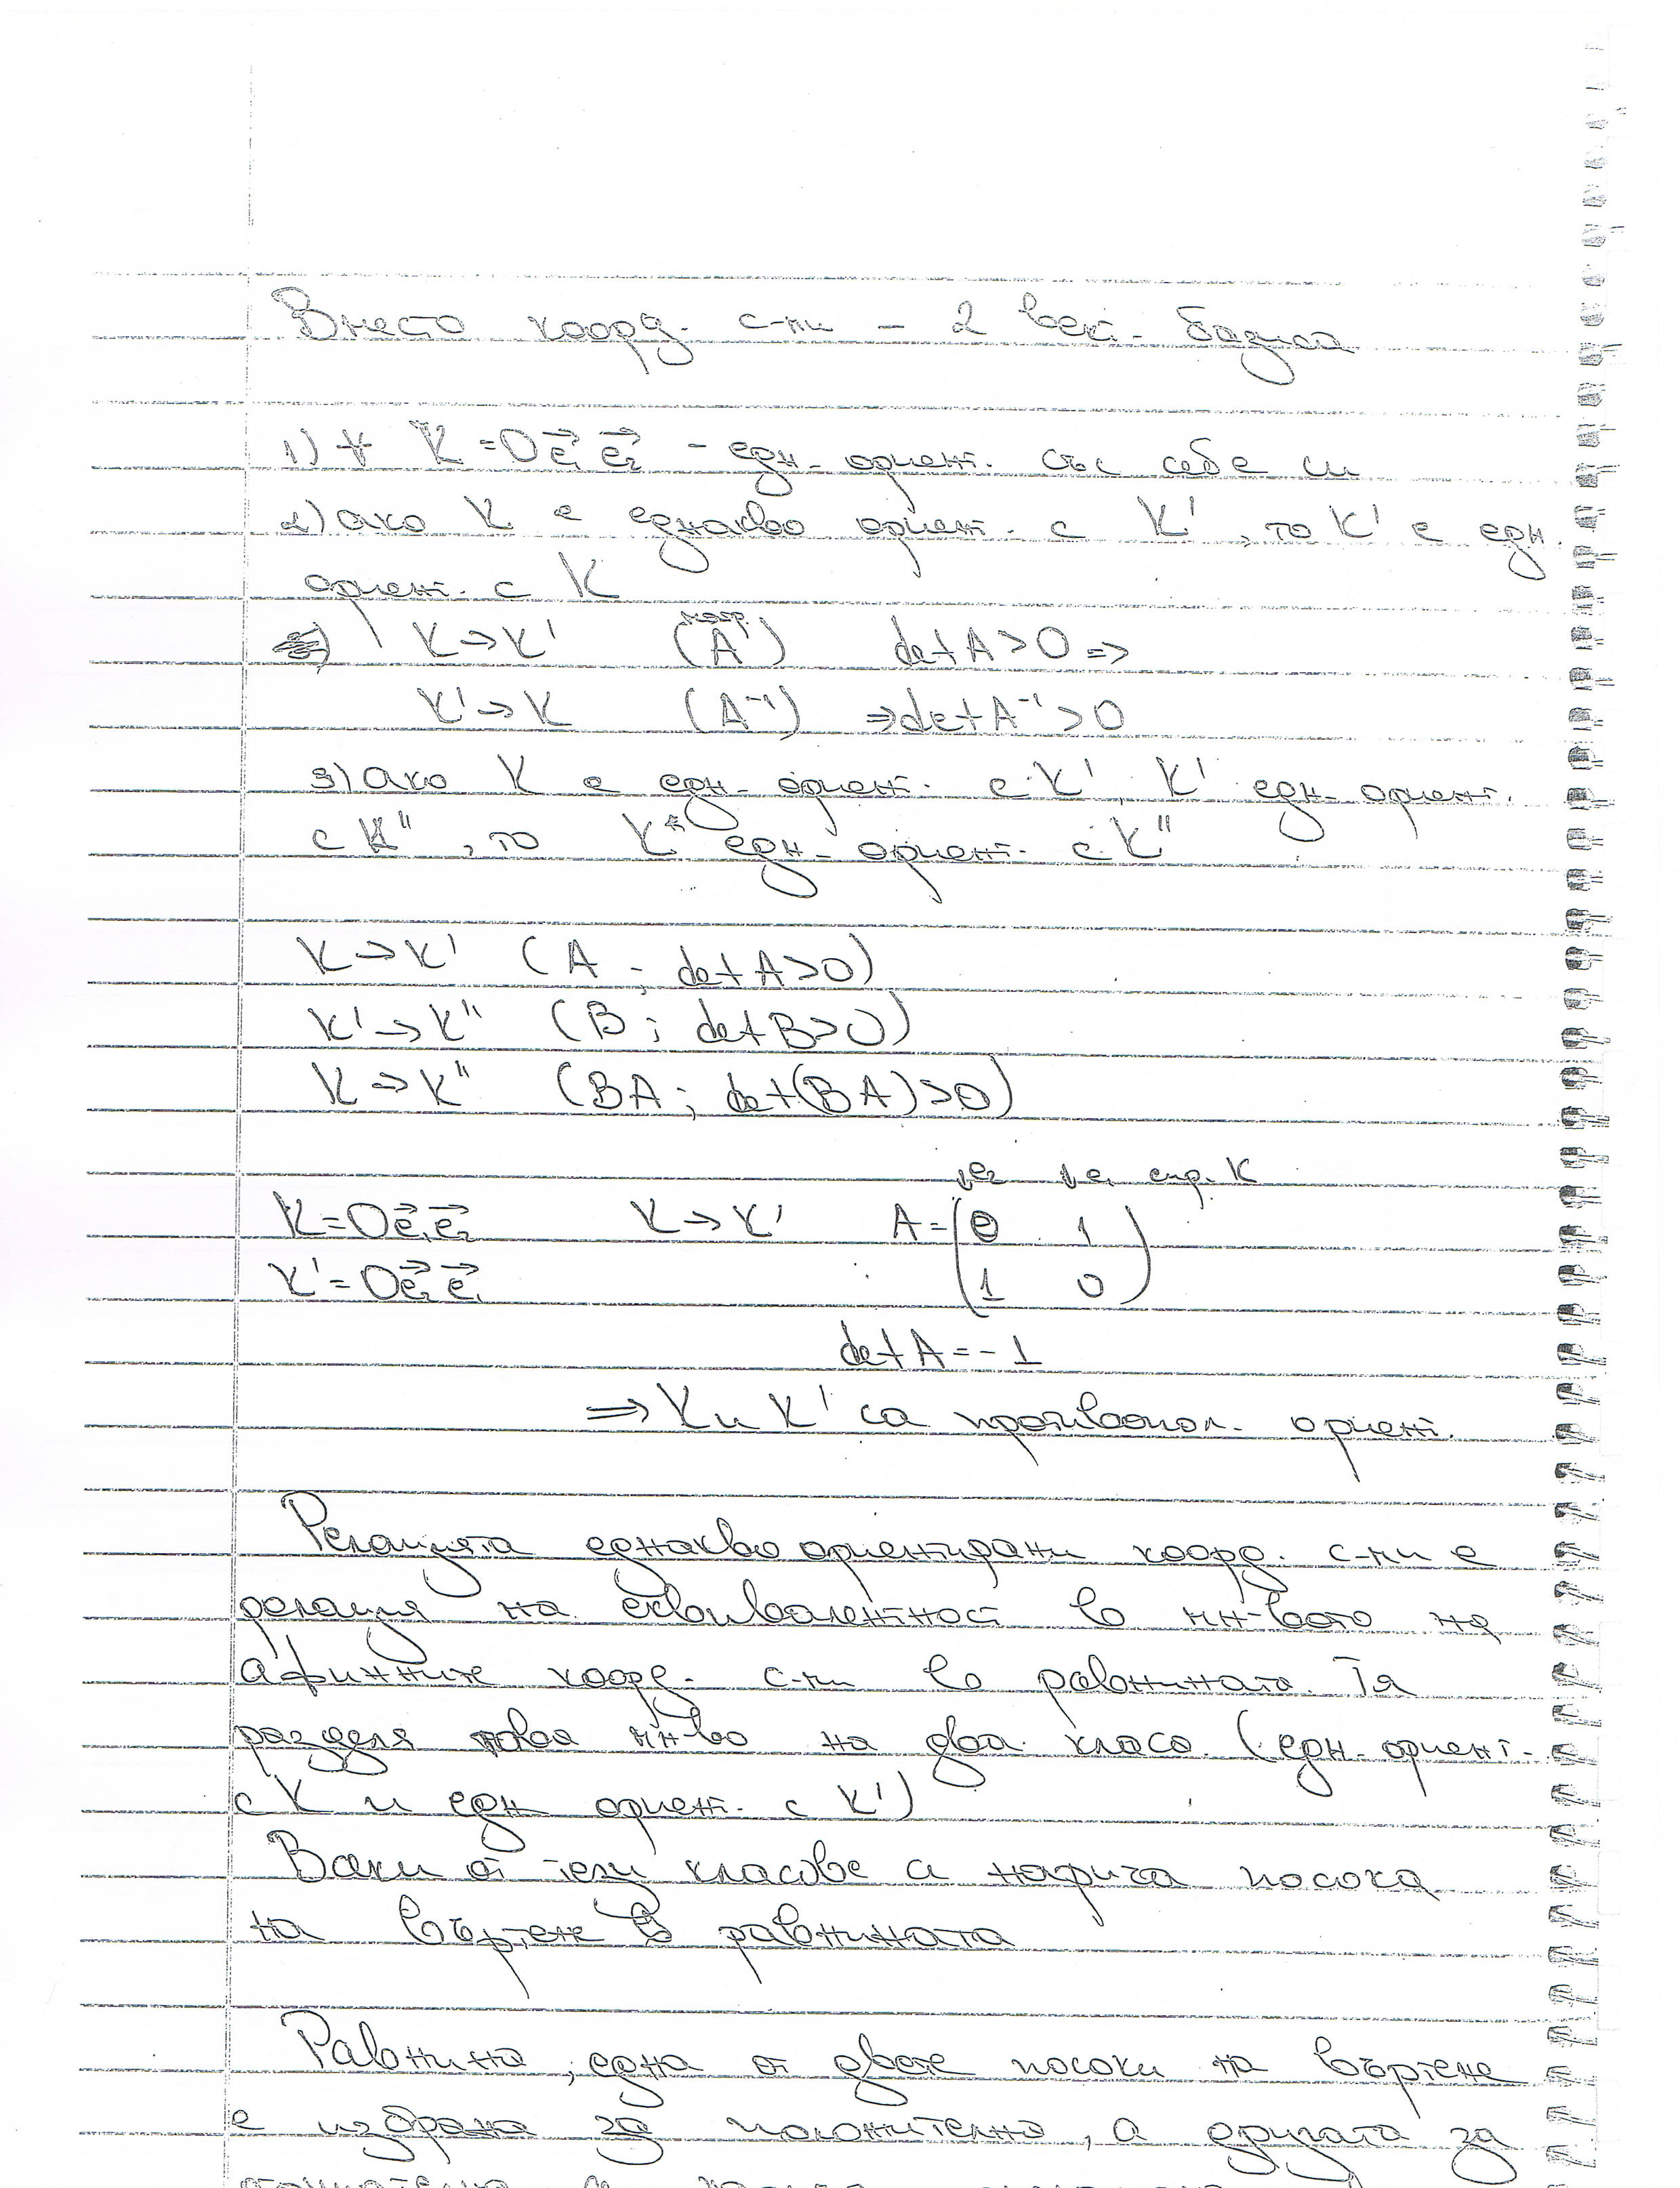 Вместо коорд. с-ми - 2 вект. базиса
1) ∀ K = O e⃗₁ e⃗₂ - едн. ориент. със себе си
2) ако K е еднакво ориент. с K', то K' е едн.
ориент. с K
K → K' (A) det A > 0 ⇒
K' → K (A⁻¹) ⇒ det A⁻¹ > 0
3) ако K е едн. ориент. с K', K' едн. ориент.
с K'', то K едн. ориент. с K''
K → K' (A ; det A > 0)
K' → K'' (B ; det B > 0)
K → K'' (BA ; det(BA) > 0)
↓e₂ ↓e₁ спр. K
K = O e⃗₁ e⃗₂ K → K' A = (0 1
K' = O e⃗₂ e⃗₁ 1 0)
det A = -1
⇒ K и K' са противопол. ориент.
Релацията еднакво ориентирани коорд. с-ми е
релация на еквивалентност в мн-вото на
афинните коорд. с-ми в равнината. Тя
разделя това мн-во на два класа (едн. ориент.
с K и едн ориент. с K')
Всеки от тези класове се нарича посока
на въртене в равнината
Равнина, една от двете посоки на въртене
е избрана за положителна, а другата за